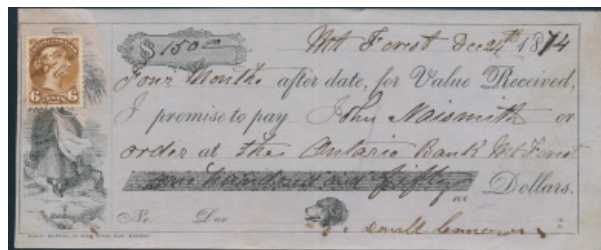 $150.00 Mt Forest Dec 24th 1874
Four Months after date, for Value Received,
I promise to pay John Naismith or
order at the Ontario Bank Mt Forest
one hundred and fifty Dollars.
No. Due
6 6